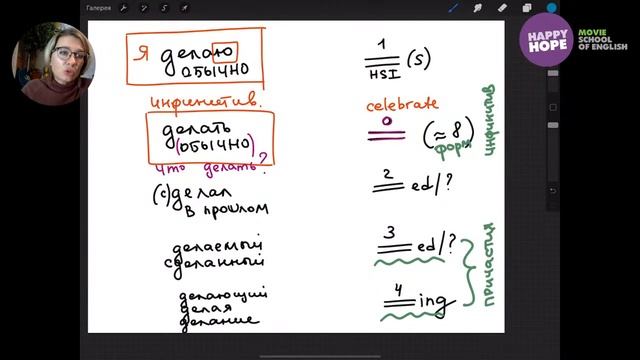 Галерея
HAPPY
HOPE
MOVIE
SCHOOL
OF ENGLISH
Я делаю
обычно
инфинитив.
делать
(обычно)
что делать?
(с)делал
в прошлом
делаемый
сделанный
делающий
делая
делание
1
(s)
HSI
celebrate
0
(≈ 8)
форм
2
ed/?
3
ed/?
4
ing
инфинитив
причастия